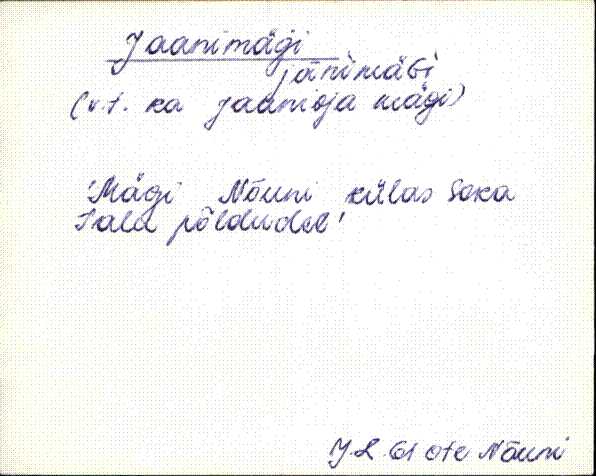 Jaanimägi
jānimäG̀i
(v.t. ka Jaanioja mägi)
'Mägi Nõuni külas Soka
talu põldudel'
J.L. 61 Ote Nõuni